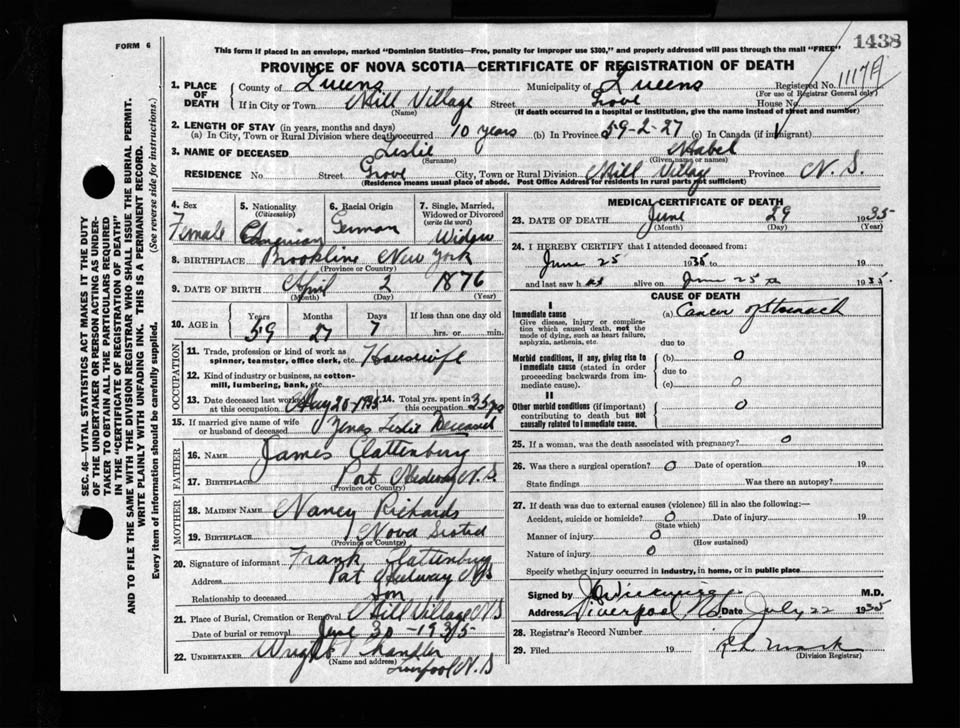 FORM 6
1438
This form if placed in an envelope, marked "Dominion Statistics—Free, penalty for improper use $300," and properly addressed will pass through the mail "FREE"
PROVINCE OF NOVA SCOTIA—CERTIFICATE OF REGISTRATION OF DEATH
1. PLACE OF DEATH
County of Queens Municipality of Queens Registered No.
(For use of Registrar General only)
If in City or Town Mill Village Street Grove House No.
(Name) (If death occurred in a hospital or institution, give the name instead of street and number)
2. LENGTH OF STAY (in years, months and days)
(a) In City, Town or Rural Division where death occurred 10 years (b) In Province 59-2-27 (c) In Canada (if immigrant)
3. NAME OF DECEASED Leslie Mabel
(Surname) (Given name or names)
RESIDENCE No. Street Grove City, Town or Rural Division Mill Village Province N. S.
(Residence means usual place of abode. Post Office Address for residents in rural parts not sufficient)
4. Sex 5. Nationality (Citizenship) 6. Racial Origin 7. Single, Married, Widowed or Divorced (write the word)
Female German Widow
8. BIRTHPLACE Brookline New York
(Province or Country)
9. DATE OF BIRTH April 2 1876
(Month) (Day) (Year)
10. AGE in Years Months Days If less than one day old
59 7 hrs. or min.
OCCUPATION
11. Trade, profession or kind of work as spinner, teamster, office clerk, etc. Housewife
12. Kind of industry or business, as cotton-mill, lumbering, bank, etc.
13. Date deceased last worked at this occupation May 20-1935 14. Total yrs. spent in this occupation 35 yrs
15. If married give name of wife or husband of deceased Zenas Leslie Deceased
FATHER
16. NAME James Clattenburg
17. BIRTHPLACE Port Medway N.S.
(Province or Country)
MOTHER
18. MAIDEN NAME Nancy Richards
19. BIRTHPLACE Nova Scotia
(Province or Country)
20. Signature of informant Frank Clattenburg
Address Port Medway N S
Relationship to deceased Son
21. Place of Burial, Cremation or Removal Mill Village N S
Date of burial or removal June 30-1935
22. UNDERTAKER Wright Chandler
(Name and address) Liverpool N. S
MEDICAL CERTIFICATE OF DEATH
23. DATE OF DEATH June 29 1935
(Month) (Day) (Year)
24. I HEREBY CERTIFY that I attended deceased from:
June 25 1935 to 19
and last saw h alive on June 25 1935.
CAUSE OF DEATH
I
Immediate cause (a) Cancer of Stomach
Give disease, injury or complication which caused death, not the mode of dying, such as heart failure, asphyxia, asthenia, etc.
due to
Morbid conditions, if any, giving rise to immediate cause (stated in order proceeding backwards from immediate cause).
(b) 0
due to
(c) 0
II
Other morbid conditions (if important) contributing to death but not causally related to immediate cause. 0
25. If a woman, was the death associated with pregnancy? 0
26. Was there a surgical operation? 0 Date of operation 19
State findings Was there an autopsy?
27. If death was due to external causes (violence) fill in also the following:
Accident, suicide or homicide? 0 Date of injury 19
(State which)
Manner of injury 0
(How sustained)
Nature of injury 0
Specify whether injury occurred in industry, in home, or in public place
Signed by M.D.
Address Liverpool N.S. Date July 22 1935
28. Registrar's Record Number
29. Filed 19
(Division Registrar)
SEC. 46—VITAL STATISTICS ACT MAKES IT THE DUTY
OF THE UNDERTAKER OR PERSON ACTING AS UNDERTAKER TO OBTAIN ALL THE PARTICULARS REQUIRED
IN THE "CERTIFICATE OF REGISTRATION OF DEATH"
AND TO FILE THE SAME WITH THE DIVISION REGISTRAR WHO SHALL ISSUE THE BURIAL PERMIT.
WRITE PLAINLY WITH UNFADING INK. THIS IS A PERMANENT RECORD.
Every item of information should be carefully supplied. (See reverse side for instructions.)